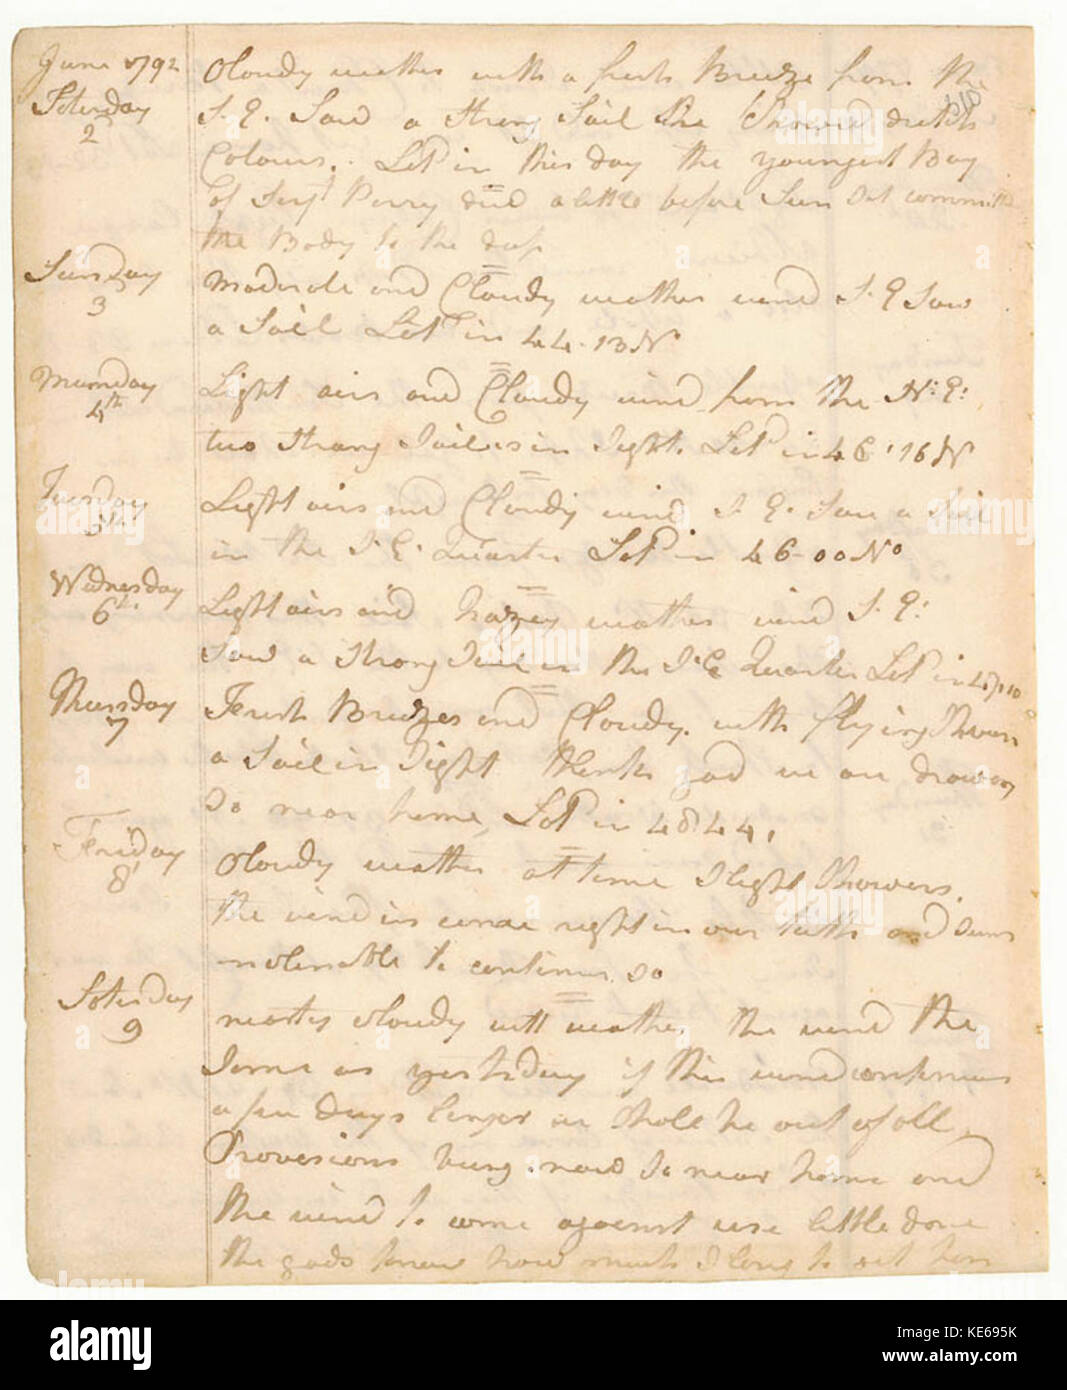 June 1792
Saterday
2
Cloudy wether with a fresh Breeze from the
S. E. Saw a Strang Sail She Showed dutch
Colours. Latd in this day the youngest Boy
of Serjt Perry died a little before Sun Set committed
the Body to the deep
Sunday
3
Moderate and Cloudy wether wind S. E Saw
a Sail Latd in 44.13 N
Munday
4th
Light airs and Cloudy wind from the N: E:
two Strang Sailes in Sight. Latd in 46.16 N
Tuesday
5th
Light airs and Cloudy wind S. E. Saw a Sail
in the S. E. Quarter Latd in 46-00 No
Wednesday
6th
Light airs and hazey wether wind S. E:
Saw a Strang Sail in the S. E Quarter Latd in
Thursday
7
Fresh Breezes and Cloudy. with flying Showrs
a Sail in Sight thenk god we are drawing
So near home, Latd in 48 44,
Friday
8
Cloudy wether at time Slight Showers.
the wind is right in our teeth and Seems
to continue So
Saterday
9
Cloudy wett wether the wind the
Same as yesterday if this wind continues
a few days longer we Shall be out of all
Provesions being now So near home and
the wind to come against use little done
the gods know how much I long to get hom
610
alamy
Image ID: KE695K
www.alamy.com